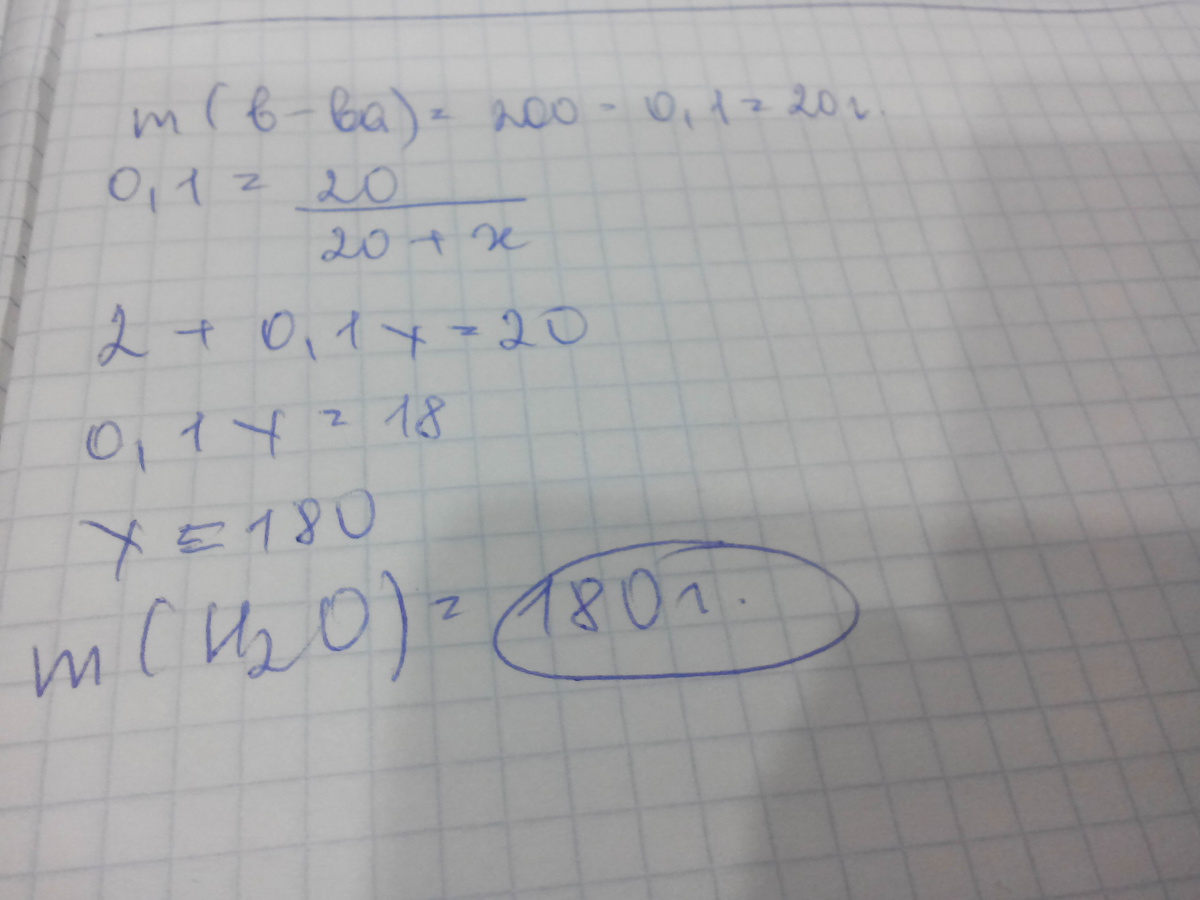 m(в-ва) = 200 - 0,1 = 20г.
0,1 = 20
20 + x
2 + 0,1x = 20
0,1x = 18
x = 180
m(H₂O) = 180г.